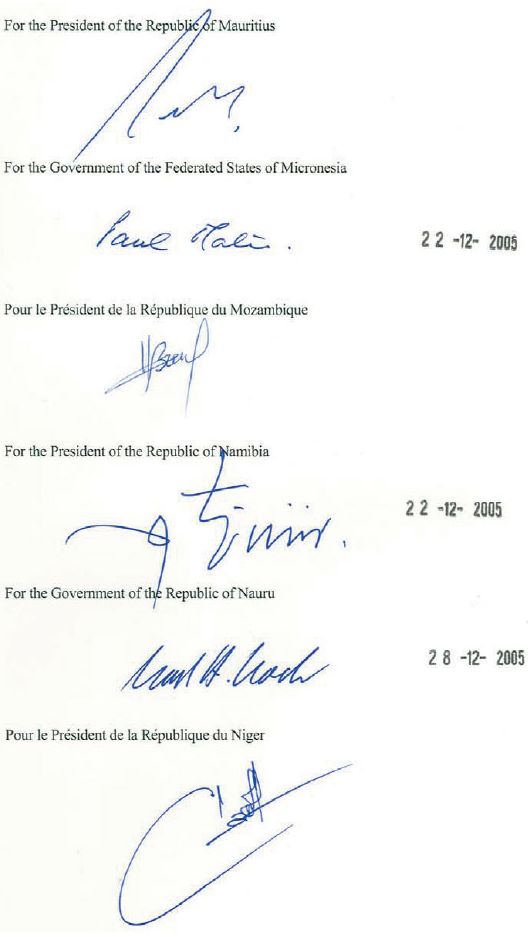 For the President of the Republic of Mauritius
For the Government of the Federated States of Micronesia
Paul
22 -12- 2005
Pour le Président de la République du Mozambique
For the President of the Republic of Namibia
22 -12- 2005
For the Government of the Republic of Nauru
28 -12- 2005
Pour le Président de la République du Niger